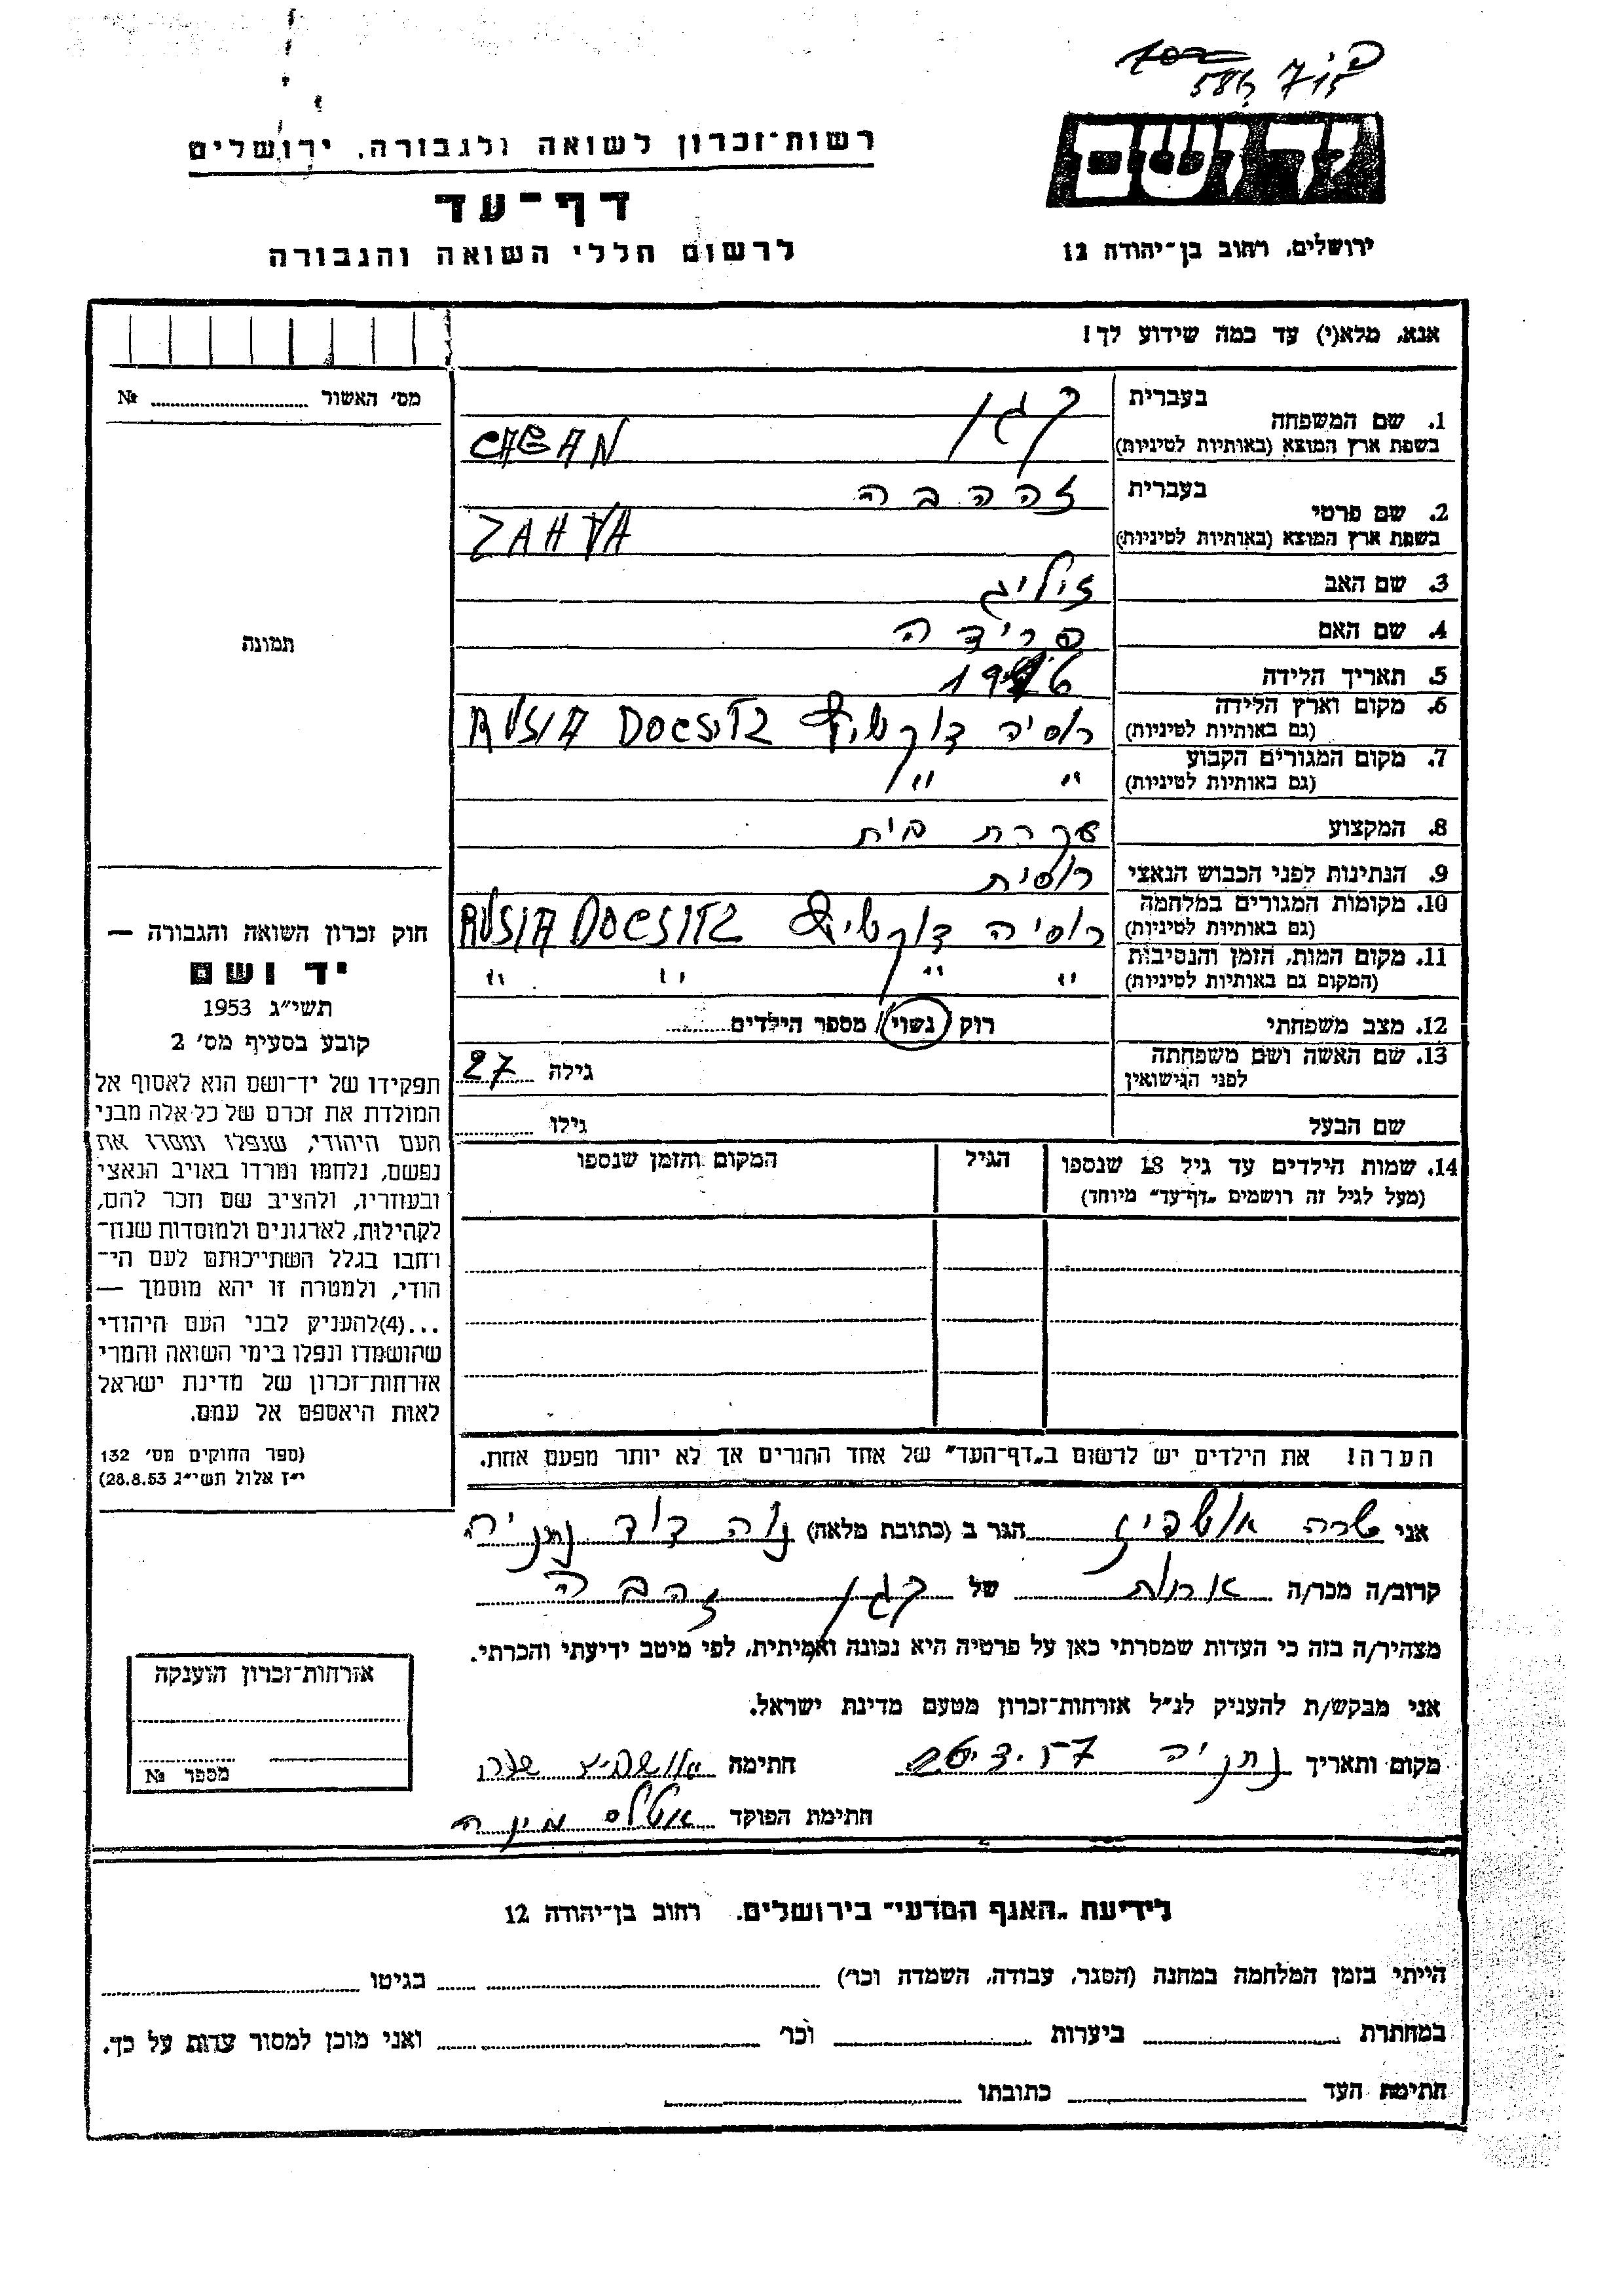 586
יד ושם
ירושלים, רחוב בן־יהודה 12
רשות־זכרון לשואה ולגבורה, ירושלים
דף־עד
לרשום חללי השואה והגבורה
אנא, מלא(י) עד כמה שידוע לך!
מס׳ האשור .......... №
תמונה
1. שם המשפחה
בעברית קגן
בשפת ארץ המוצא (באותיות לטיניות)
2. שם פרטי
בעברית זההבה
בשפת ארץ המוצא (באותיות לטיניות) ZAHVA
3. שם האב זיליג
4. שם האם פרידה
5. תאריך הלידה
6. מקום וארץ הלידה
(גם באותיות לטיניות) רוסיה RUSIA DOCSITZ
7. מקום המגורים הקבוע
(גם באותיות לטיניות) " "
8. המקצוע עקרת בית
9. הנתינות לפני הכבוש הנאצי רוסית
10. מקומות המגורים במלחמה
(גם באותיות לטיניות) רוסיה RUSIA DOCSITZ
11. מקום המות, הזמן והנסיבות
(המקום גם באותיות לטיניות) " " " "
12. מצב משפחתי רוק / נשוי / מספר הילדים..........
13. שם האשה ושם משפחתה
לפני הנישואין גילה 27
שם הבעל גילו ..........
14. שמות הילדים עד גיל 18 שנספו
(מעל לגיל זה רושמים „דף־עד" מיוחד)
הגיל
המקום והזמן שנספו
הערה! את הילדים יש לרשום ב„דף־העד" של אחד ההורים אך לא יותר מפעם אחת.
חוק זכרון השואה והגבורה —
יד ושם
תשי״ג 1953
קובע בסעיף מס׳ 2
תפקידו של יד־ושם הוא לאסוף אל
המולדת את זכרם של כל אלה מבני
העם היהודי, שנפלו ומסרו את
נפשם, נלחמו ומרדו באויב הנאצי
ובעוזריו, ולהציב שם וזכר להם,
לקהילות, לארגונים ולמוסדות שנח־
רחבו בגלל השתייכותם לעם הי־
הודי, ולמטרה זו יהא מוסמך —
...(4)להעניק לבני העם היהודי
שהושמדו ונפלו בימי השואה והמרי
אזרחות־זכרון של מדינת ישראל
לאות היאספם אל עמם.
(ספר החוקים מס׳ 132
י״ז אלול תשי״ג 28.8.53)
אני שרה הגר ב (כתובת מלאה) נוה דוד נתניה
קרוב/ה מכר/ה של קגן זהבה
מצהיר/ה בזה כי העדות שמסרתי כאן על פרטיה היא נכונה ואמיתית, לפי מיטב ידיעתי והכרתי.
אני מבקש/ת להעניק לנ״ל אזרחות־זכרון מטעם מדינת ישראל.
מקום ותאריך נתניה חתימה שרה
חתימת הפוקד
אזרחות־זכרון הוענקה
מספר №
לידיעת „האגף המדעי" בירושלים, רחוב בן־יהודה 12
הייתי בזמן המלחמה במחנה (הסגר, עבודה, השמדה וכו׳) .......... בגיטו ..........
במחתרת .......... ביערות .......... וכו׳ .......... ואני מוכן למסור עדות על כך.
חתימת העד .......... כתובתו ..........